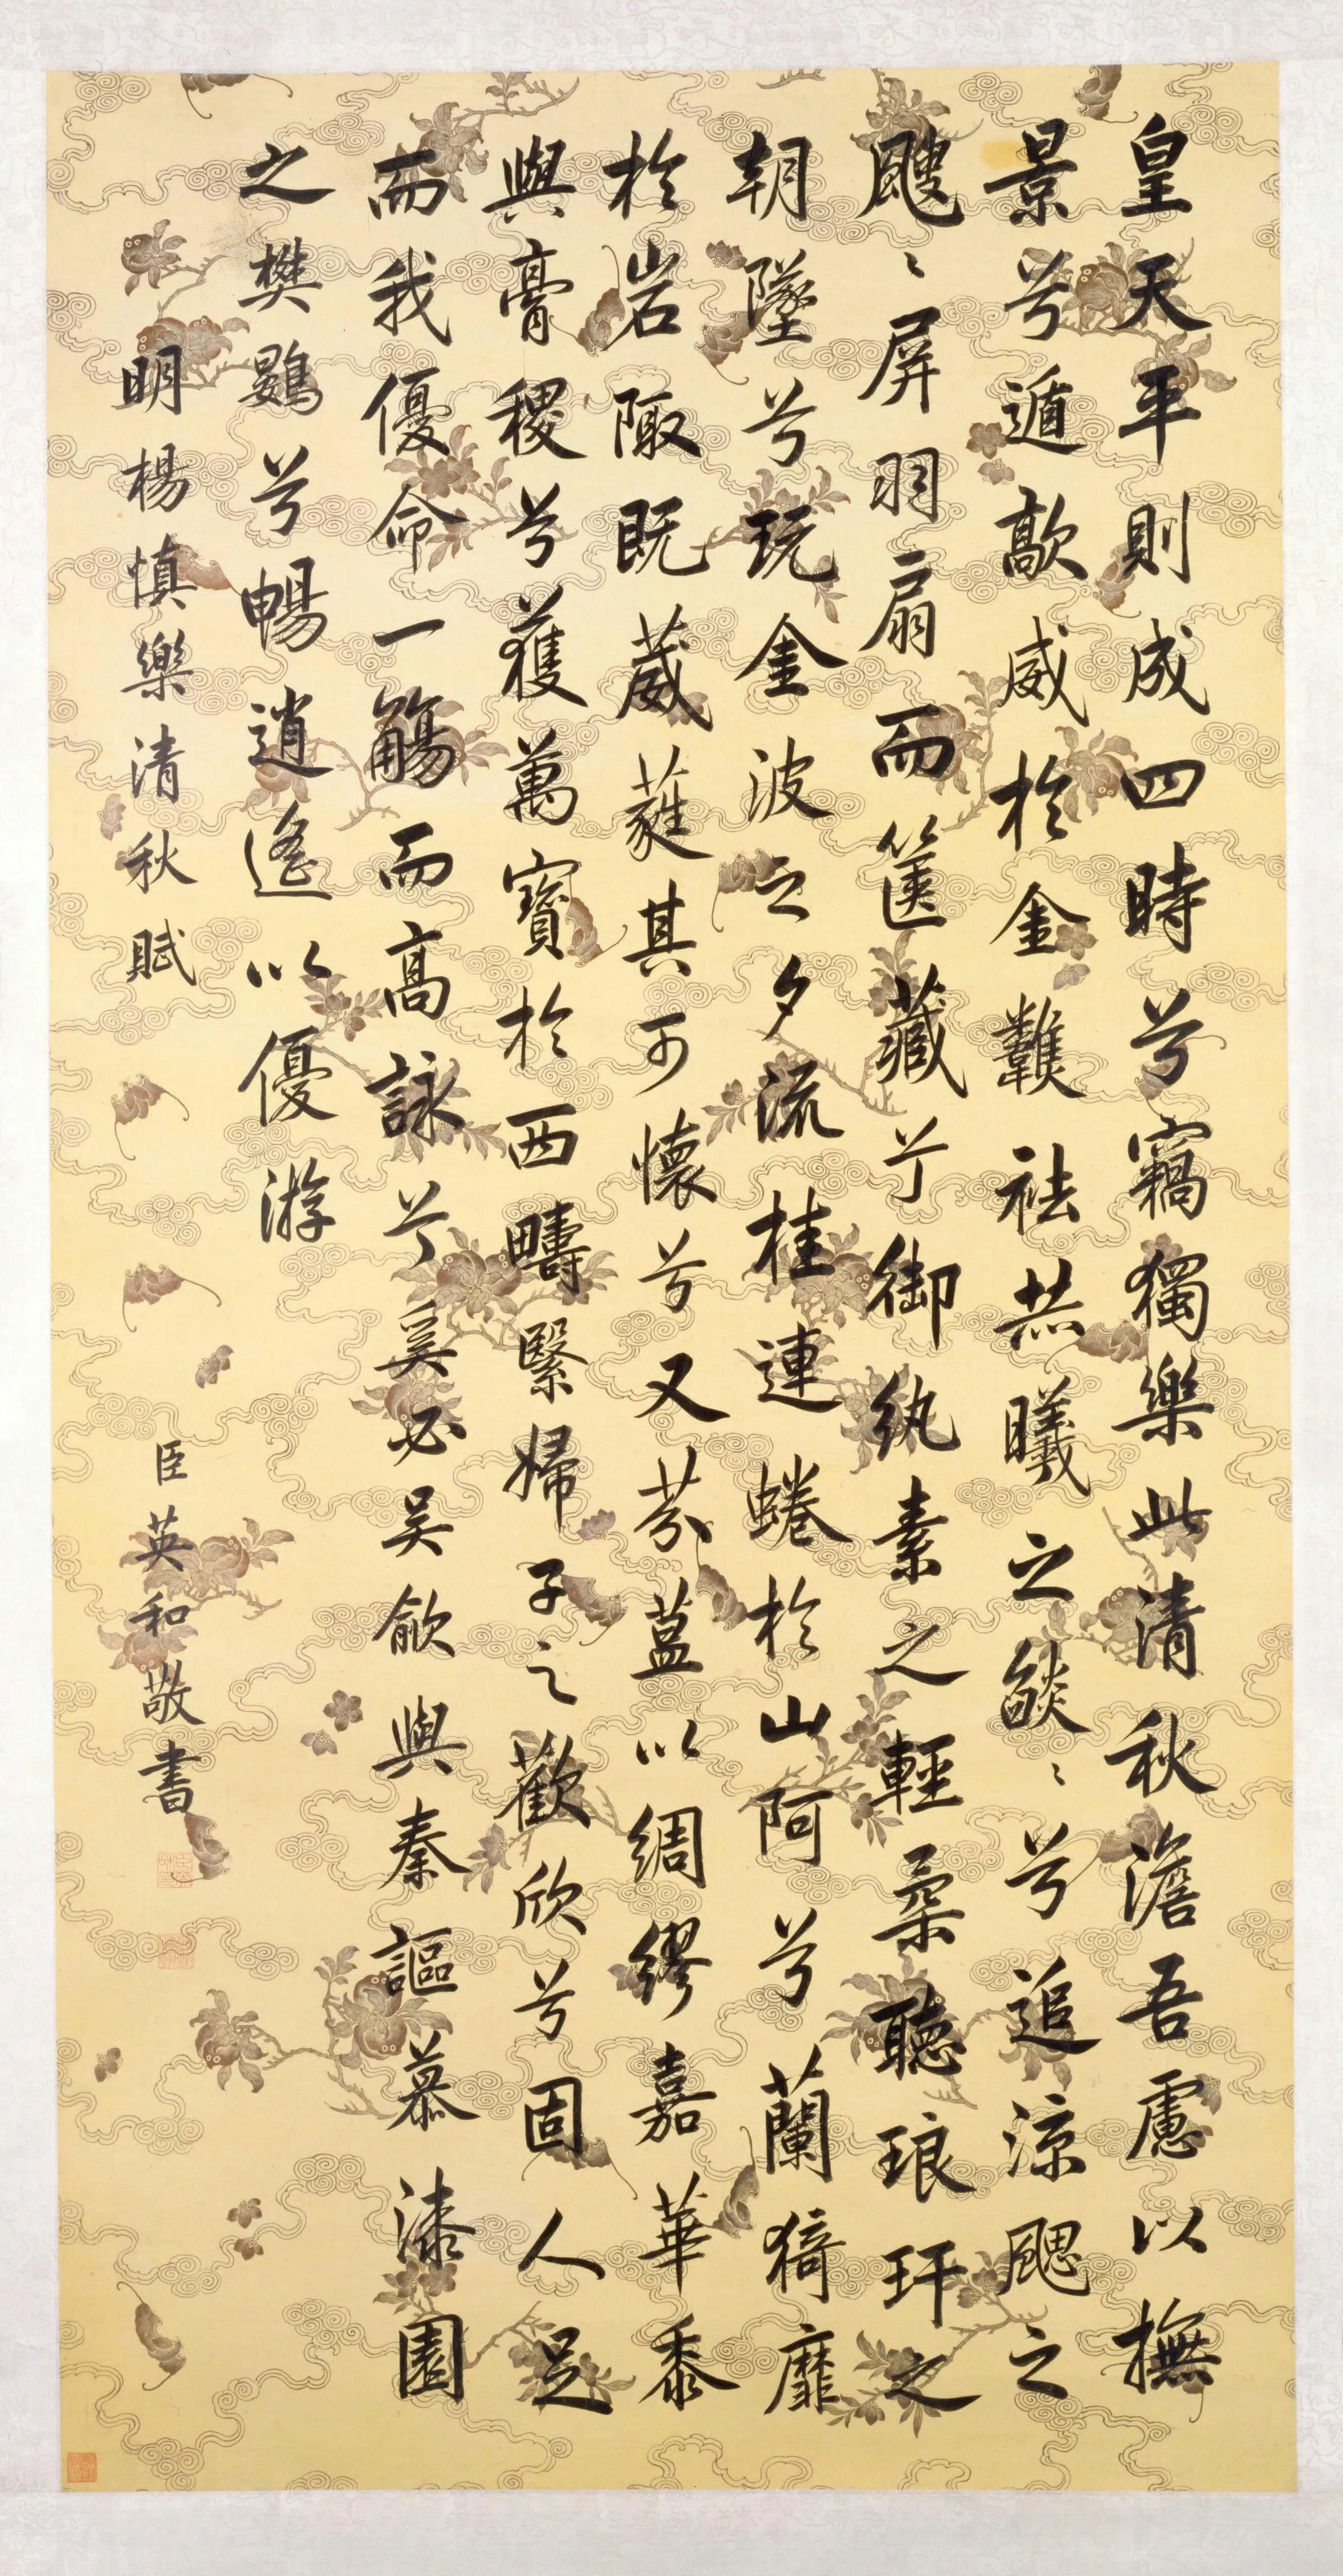 皇天平則成四時兮竊獨樂此清秋澹吾慮以撫
景兮遁歊威於金䕼祛共曦之燄〻兮追涼颸之
颼〻屏羽扇而篋藏兮御紈素之輕柔聽琅玕之
朝墜兮玩金波之夕流桂連蜷於山阿兮蘭猗靡
於岩陬既葳蕤其可懷兮又芬葢以綢繆嘉華黍
與膏稷兮獲萬寶於西疇緊婦子之歡欣兮固人足
而我優命一觴而高詠兮奚必吴歈與秦謳慕漆園
之樊鷃兮暢逍遙以優游
明楊慎樂清秋賦
臣英和敬書